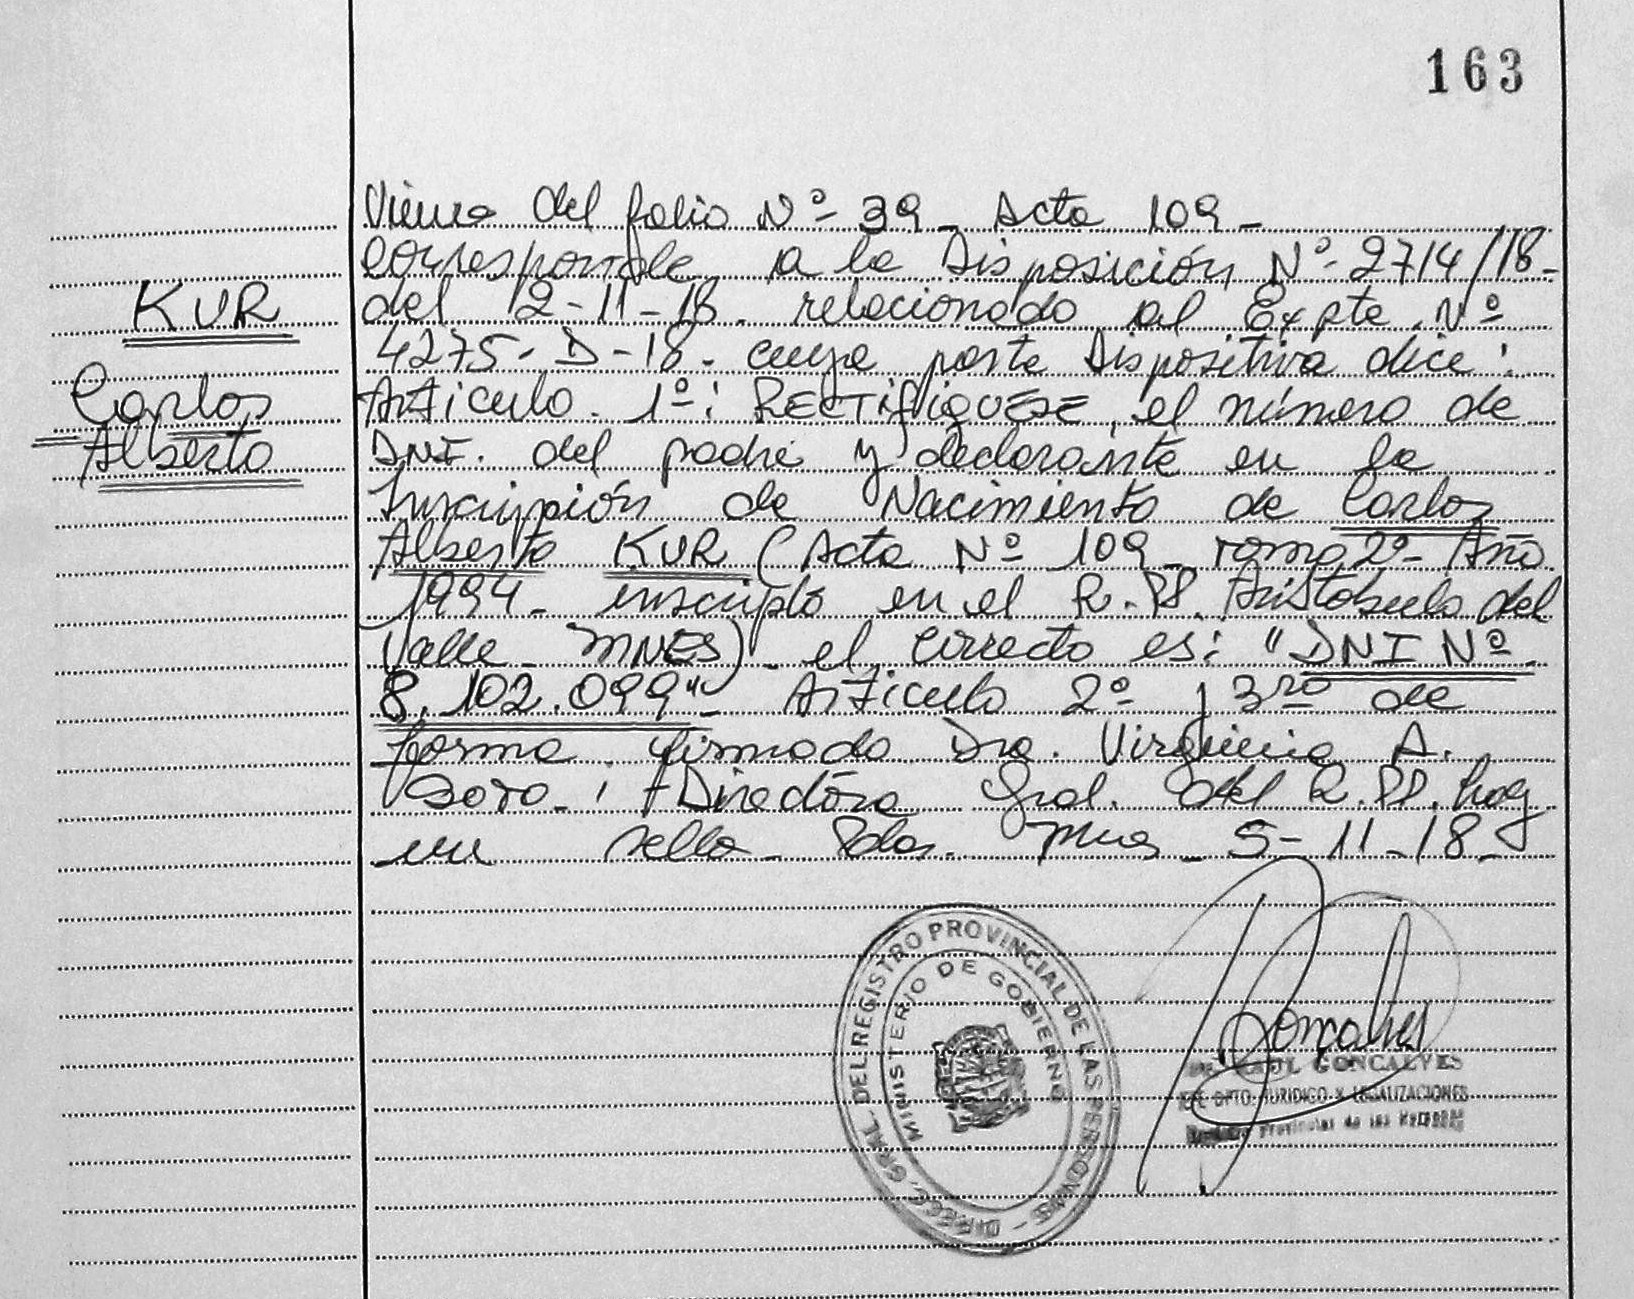 163
Viene del folio Nº 39 - Acta 109 -
KUR
Carlos
Alberto
corresponde a la Disposición Nº 2714/18 -
del 2-11-18. relacionado al Expte. Nº
4275-D-18- cuya parte Dispositiva dice:
Artículo. 1º: RECTIFIQUESE, el número de
DNI. del padre y declarante en la
Inscripción de Nacimiento de Carlos
Alberto KUR (Acta Nº 109 - Tomo 2º- Año
1994- inscripto en el R.PP. Aristobulo del
Valle - MNES) - el correcto es: "DNI Nº
8.102.099" - Artículo 2º y 3ro de
forma. firmado Dra. Virginia A.
Directora Gral. del R.PP. hay
un sello - Pdas. Mnes - 5-11-18-
DIREC. GRAL. DEL REGISTRO PROVINCIAL DE LAS PERSONAS -
MINISTERIO DE GOBIERNO
Gonçalves
RAUL GONCALVES
JEFE DPTO. JURIDICO Y LEGALIZACIONES
Provincial de las Personas